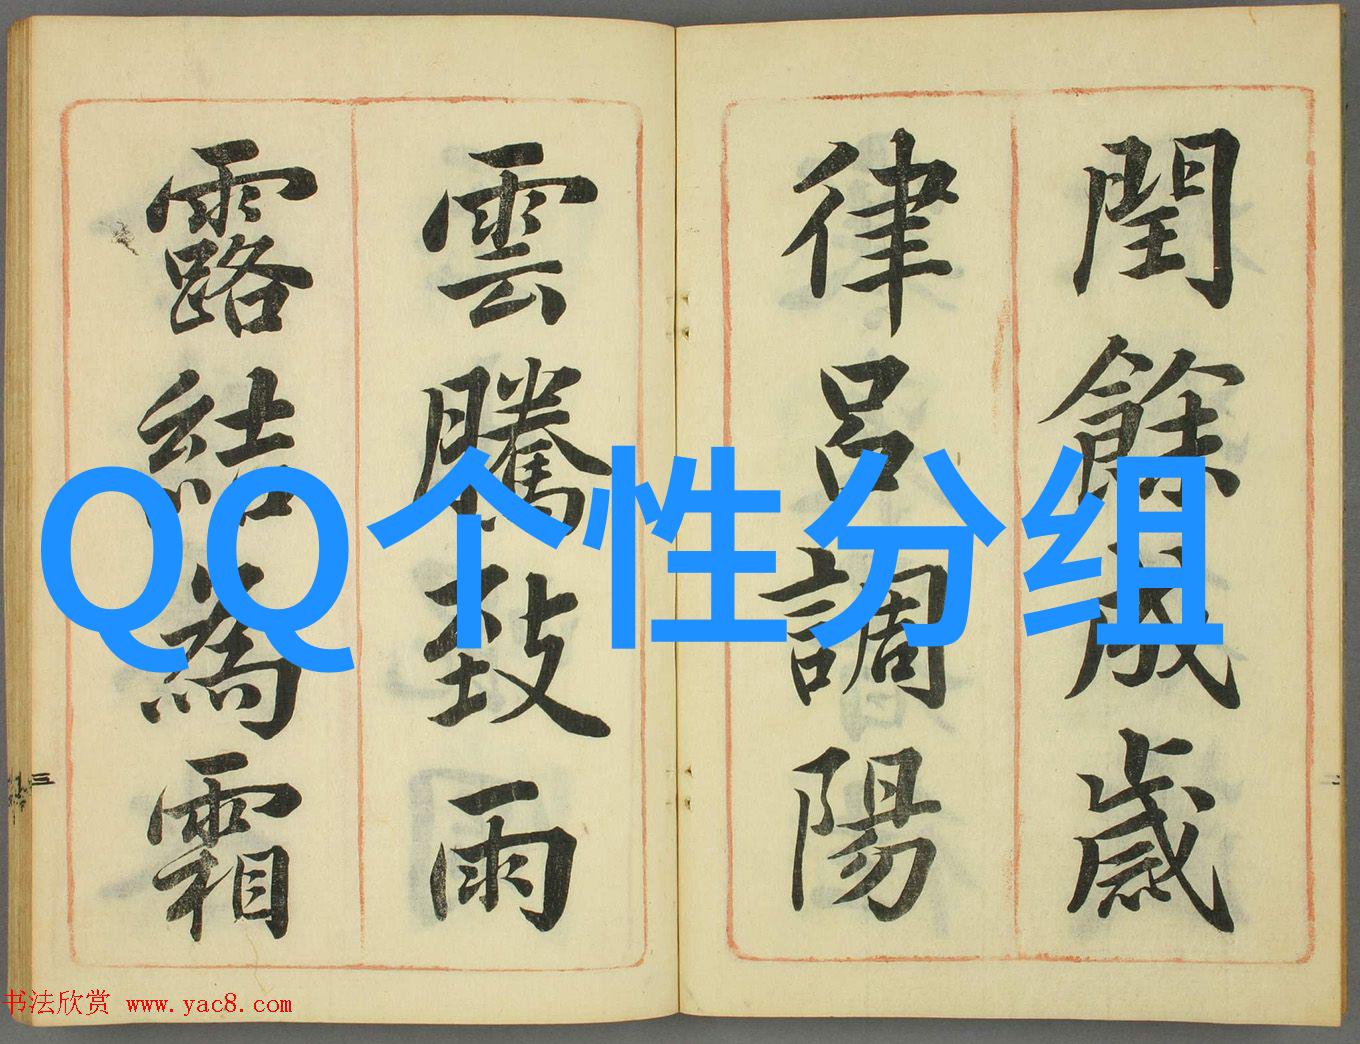 閏餘成歲
律呂調陽
雲騰致雨
露結為霜
QQ个性分组
三
二
书法欣赏 www.yac8.com